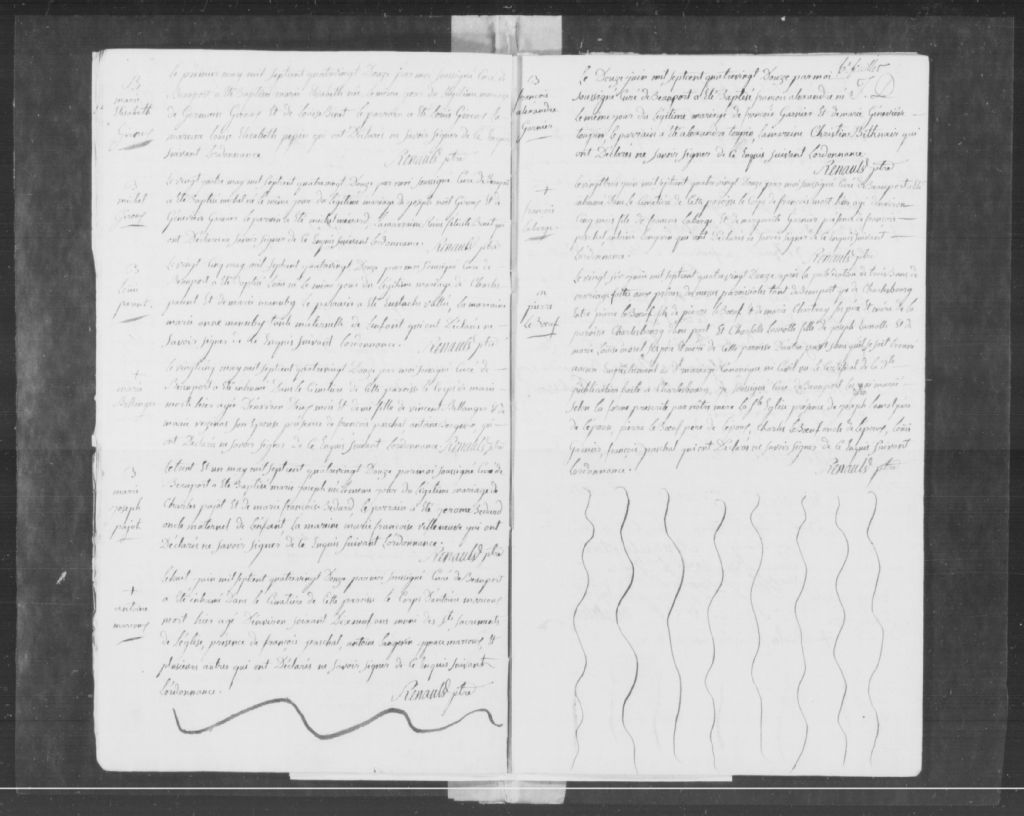 B
marie
Elisabeth
Giroux
Le premier may mil septcent quatrevingt Douze par moi soussigné Curé de
Beauport a été Baptisée marie Elisabeth née le même jour du légitime mariage
de Germain Giroux Et de Louise Binet le parrain a été Louis Giroux la
maraine Louise Elisabeth qui ont Déclarés ne savoir signer de ce Enquis
suivant Lordonnance.
Renauld ptre
B
michel
Giroux
Le vingt quatre may mil septcent quatrevingt Douze par moi soussigné Curé de Beauport
a été Baptisé michel né le même jour du légitime mariage de joseph noël Giroux Et de
Geneviève Garnier le parrain a été michel la marraine qui
ont Déclarés ne savoir signer de ce Enquis suivant Lordonnance. Renauld ptre
B
Louis
parent
Le vingt cinq may mil septcent quatrevingt Douze par moi soussigné Curé de
Beauport a été Baptisé Louis né le même jour du légitime mariage de Charles
parent Et de marie le parrain a été Eustache vallée, la marraine
marie anne tante maternelle de Lenfant qui ont Déclarés ne
savoir signer de ce Enquis suivant Lordonnance.
Renauld ptre
+
marie
Bellanger
Le vingt cinq may mil septcent quatrevingt Douze par moi soussigné Curé de
Beauport a été inhumé Dans le Cimetière de cette paroisse le Corps de marie
morte hier agée D'environ mois Et demi fille de vincent Bellanger Et de
marie vezinas son Epouse présence de françois paschal antoine Langevin qui
ont Déclarés ne savoir signer de ce Enquis suivant Lordonnance. Renauld ptre
B
marie
joseph
pajot
Le trent Et un may mil septcent quatrevingt Douze par moi soussigné Curé de
Beauport a été Baptisée marie joseph née le même jour du légitime mariage de
Charles pajot Et de marie françoise Bedard, le parrain a été jerome Bedard
oncle maternel de Lenfant, la maraine marie francoise villeneuve qui ont
Déclarés ne savoir signer de ce Enquis suivant Lordonnance.
Renauld ptre
+
antoine
marcoux
Le huit juin mil septcent quatrevingt Douze par moi soussigné Curé de Beauport
a été inhumé Dans le Cimetière de cette paroisse le Corps Dantoine marcoux
mort hier agé D'environ soixant Dixneuf ans muni des Sts Sacrements
de Léglise, présence de françois paschal, antoine Langevin, ignace marcoux, Et
plusieurs autres qui ont Déclarés ne savoir signer de ce Enquis suivant
Lordonnance.
Renauld ptre
B
francois
alexandre
Garnier
Le Douze juin mil septcent quatrevingt Douze par moi
soussigné Curé de Beauport a été Baptisé francois alexandre né
le même jour du légitime mariage de françois Garnier Et de marie Geneviève
toupin le parrain a été alexandre toupin, la maraine Christine Béthiaut qui
ont Déclarés ne savoir signer de ce Enquis suivant Lordonnance.
Renauld ptre
+
françois
Laberge
Le vingt trois juin mil septcent quatrevingt Douze par moi soussigné Curé de Beauport a été
inhumé dans le Cimetière de cette paroisse le Corps de françois mort hier agé d'environ
cinq mois fils de francois Laberge Et de marguerite Garnier présence de francois
paschal antoine Langevin qui ont Déclarés ne savoir signer de ce Enquis suivant
Lordonnance.
Renauld ptre
m
pierre
le Boeuf
Le vingt six juin mil septcent quatrevingt Douze après la publication de trois Bans de
mariage faites aux prônes des messes paroissiales tant de Beauport que de Charlesbourg
Entre pierre le Boeuf fils de pierre le Boeuf Et de marie ses père Et mère de la
paroisse Charlesbourg d'une part Et Charlotte Lamotte fille de joseph Lamotte Et de
marie Louise ses père Et mère de cette paroisse Dautre part sans quil se soit trouvé
aucun Empêchement au mariage Canonique ou Civil de la
publication faite a Charlesbourg, je soussigné Curé de Beauport les ay mariés
selon la forme prescrite par notre mere la Ste Eglise présence de joseph père
de Lepouse, pierre le Boeuf père de Lepoux, Charles le Boeuf oncle de Lepoux, Louis
Garnier, françois paschal qui ont Déclarés ne savoir signer de ce Enquis suivant
Lordonnance.
Renauld ptre